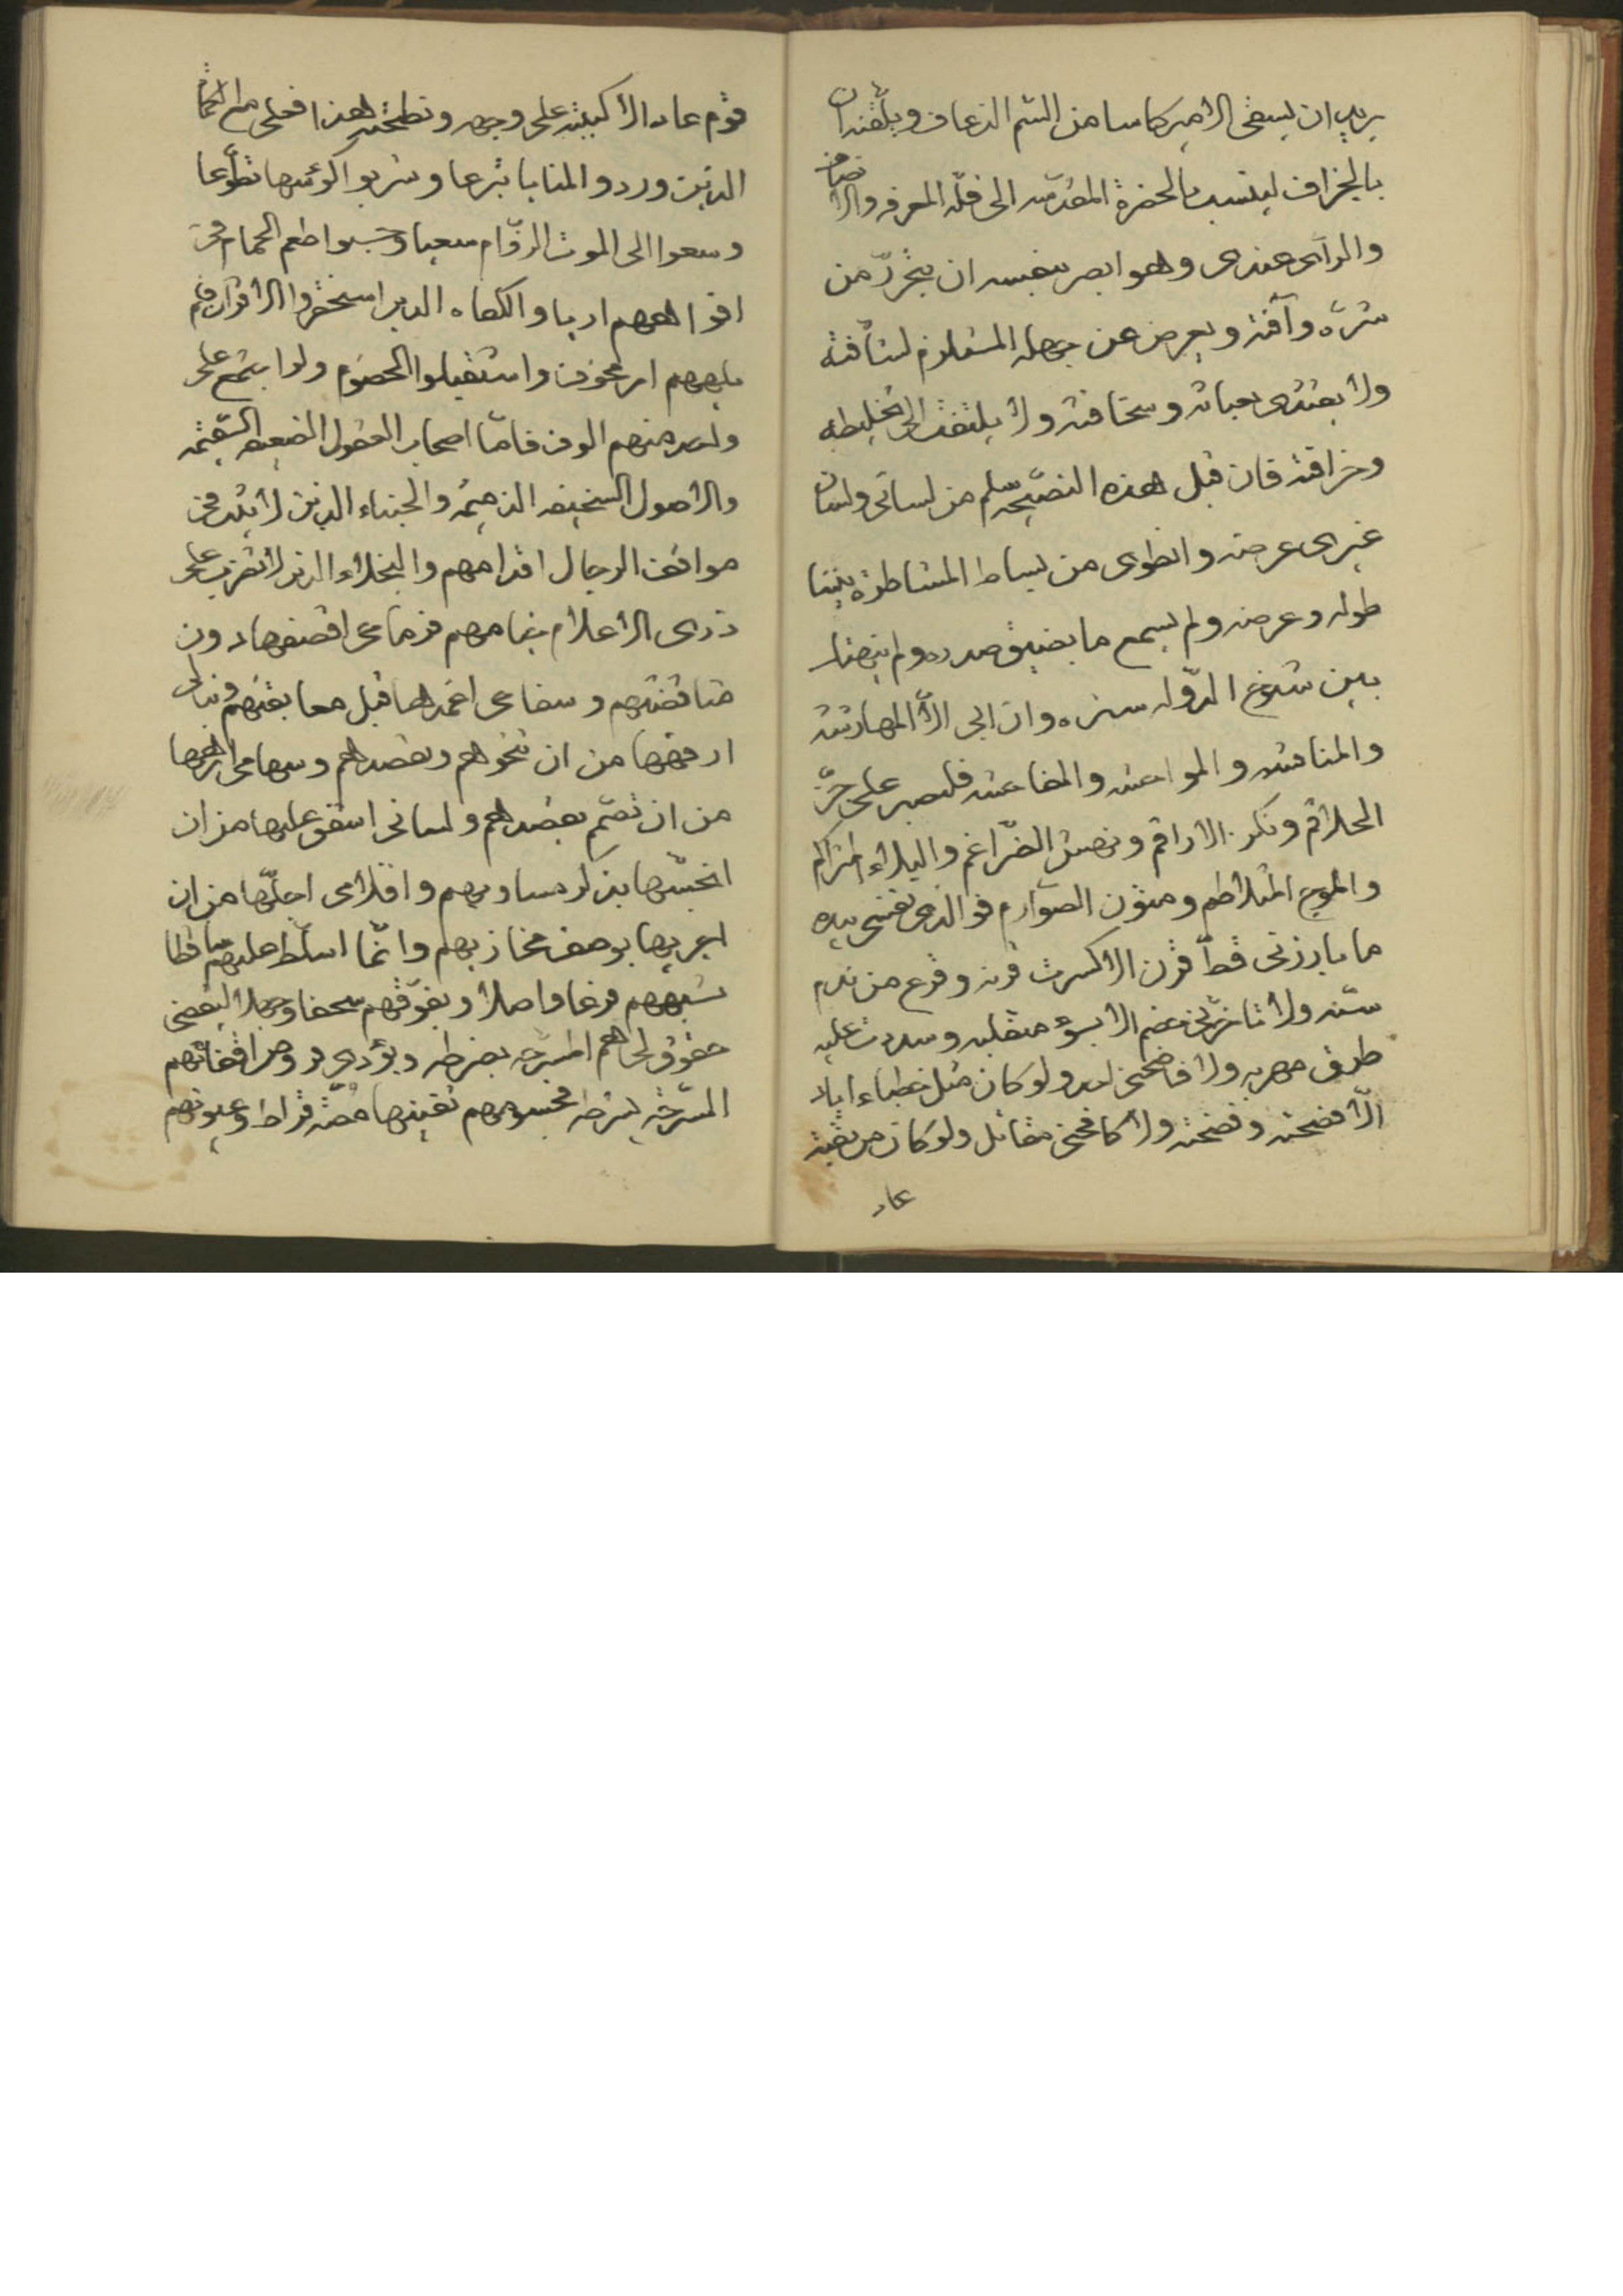 يريد ان يسقى الامير كاسا من السم الذعاف ويلقنه ان
بالجزاف لينسب بالحضرة المقدسه الى قله المعرفه والانصاف
والراى عندى وهو ابصر بنفسه ان يتحرز من
شره وآفته ويعرض عن جهله المتقادم لشآفته
ولا يغتدى بحياته وسخافته ولا يلتفت الى تخليطه
وخرافته فان قبل هذه النصيحه سلم من لسانى ولسان
غيرى عرضه وانطوى من بساط المناظرة بيننا
طوله وعرضه ولم يسمع ما يضيق صدره ولم ينهتك
بين شيوخ الدوله ستره وان ابى الا المهارشه
والمناقشه والمواحشه والمفاحشه فليصبر على حز
الحلاقم ونكز الاراقم ونهش الضراغم والبلاء المتراكم
والموج المتلاطم ومتون الصوارم فوالذى نفسى بيده
ما بارزنى قط قرن الا كسرت قرنه وقرع من ندم
سنه ولا ناخرنى خصم الا بسؤ منقلبه وسددت عليه
طريق مهربه ولا فاضحنى احد ولو كان مثل خطباء اياد
الا فضحته وفضحته ولا كافحنى مقاتل ولو كان من بقية
عاد
قوم عاد الا كببته على وجهه ونطحته هذا فعلى مع الكماة
الذين وردوا المنايا تبرعا وشربوا كؤسها تطوعا
وسعوا الى الموت الزؤام سعيا وحسبوا طعم الحمام فى
افواههم اريا والكماه الذين استحقروا الاقران فلم
يلههم امر مخوف واستقبلوا الخصوم ولو اجتمع على
واحد منهم الوف فاما اصحاب العقول الضعيفه السقيمه
والاصول السخيفه الذميمه والجبناء الذين لا تثبت فى
مواقف الرجال اقدامهم والبخلاء الذين لا تضرب على
ذرى الاعلام خيامهم فرماحى اقصفها دون
مناقضتهم وسفاعى اغمدها قبل معابثتهم ونبالى
ارفعها من ان تنحوهم وتقصدهم وسهامى انزهها
من ان تصم بقصدهم ولسانى اشفق عليها من ان
انجسها بذكر مساويهم واقلامى اجلها من ان
اجريها بوصف مخازيهم وانما اسلط عليهم ساقطا
يشبههم فرعا واصلا ويفوقهم سخفا وجهلا ليقضى
حقوق لحاهم المسرحه بضرطه ويؤدى فروض اقفائهم
المشرحه بشرطه فجسومهم تفنيها مصة قراط وعيونهم